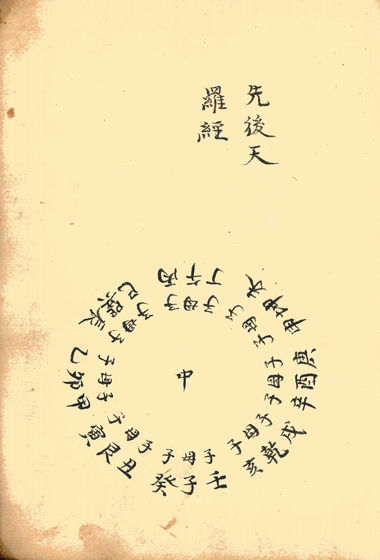 先後天
羅經
丙午丁
子母子
未坤申
子母子
庚酉辛
子母子
戌乾亥
子母子
壬子癸
子母子
丑艮寅
子母子
甲卯乙
子母子
辰巽巳
子母子
中